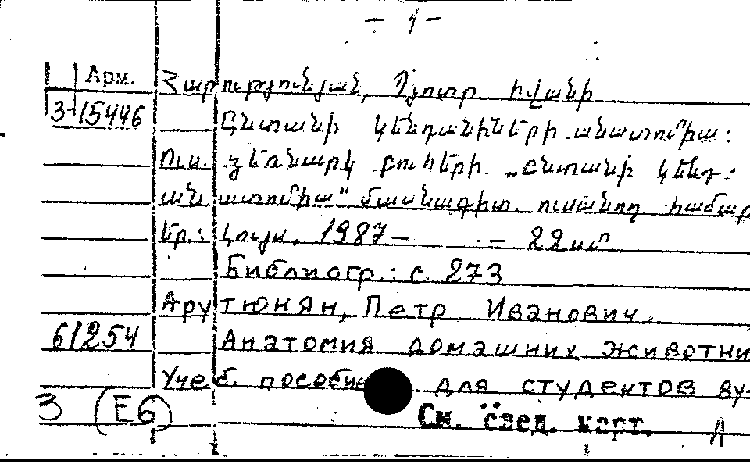 - 1 -
Арм. Հարությունյան, Պյոտր Իվանի
3-15446 Ընտանի կենդանիների անատոմիա:
Ուս. ձեռնարկ բուհերի „Ընտանի կենդ.
անատոմիա" մասնագիտ. ուսանող համար
Եր.: Լույս, 1987- - 22սմ
Библиогр.: с. 273
Арутюнян, Петр Иванович.
61254 Анатомия домашних животни
Учеб. пособие для студентов ву-
3 (Е6) См. след. карт. А